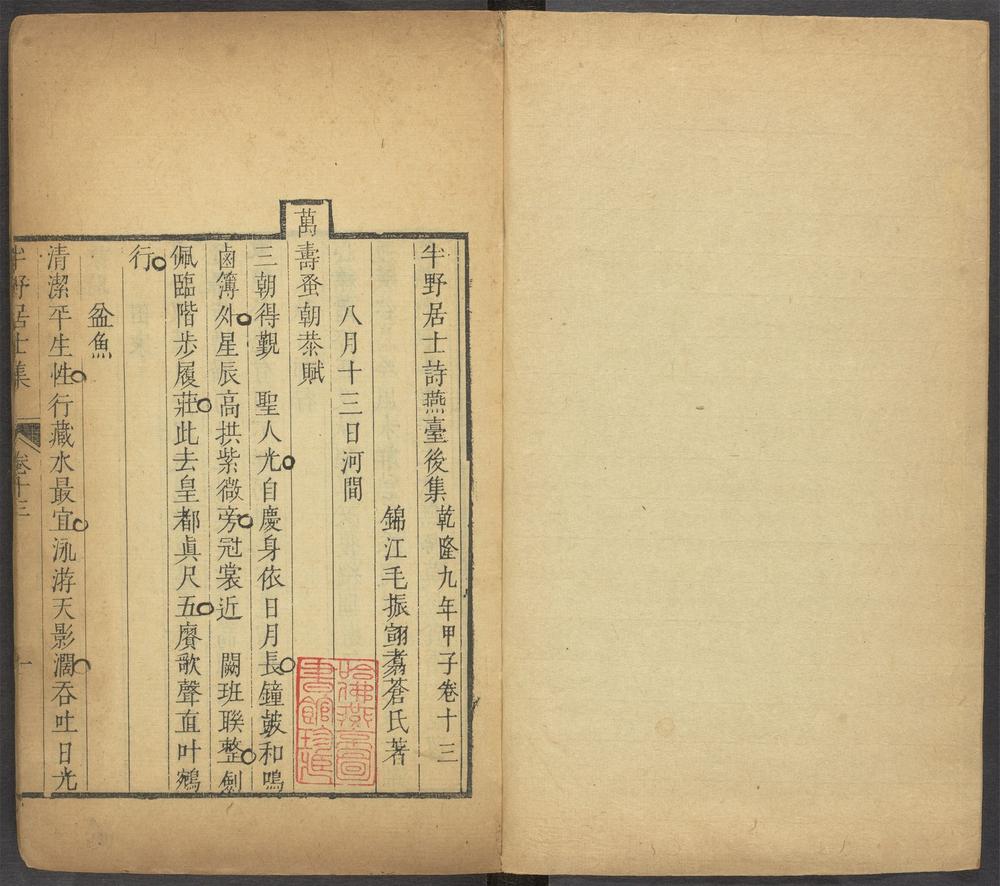 半野居士詩燕臺後集乾隆九年甲子卷十三
錦江毛振翧翥蒼氏著
八月十三日河間
萬壽蚤朝恭賦
三朝得覲　聖人光自慶身依日月長鐘鼓和鳴
鹵簿外星辰高拱紫微旁冠裳近　闕班聯整劍
佩臨階步履莊此去皇都眞尺五賡歌聲直叶鵷
行
盆魚
清潔平生性行藏水最宜泳游天影濶吞吐日光
半野居士集　卷十三　一
哈佛燕京圖書館珍藏